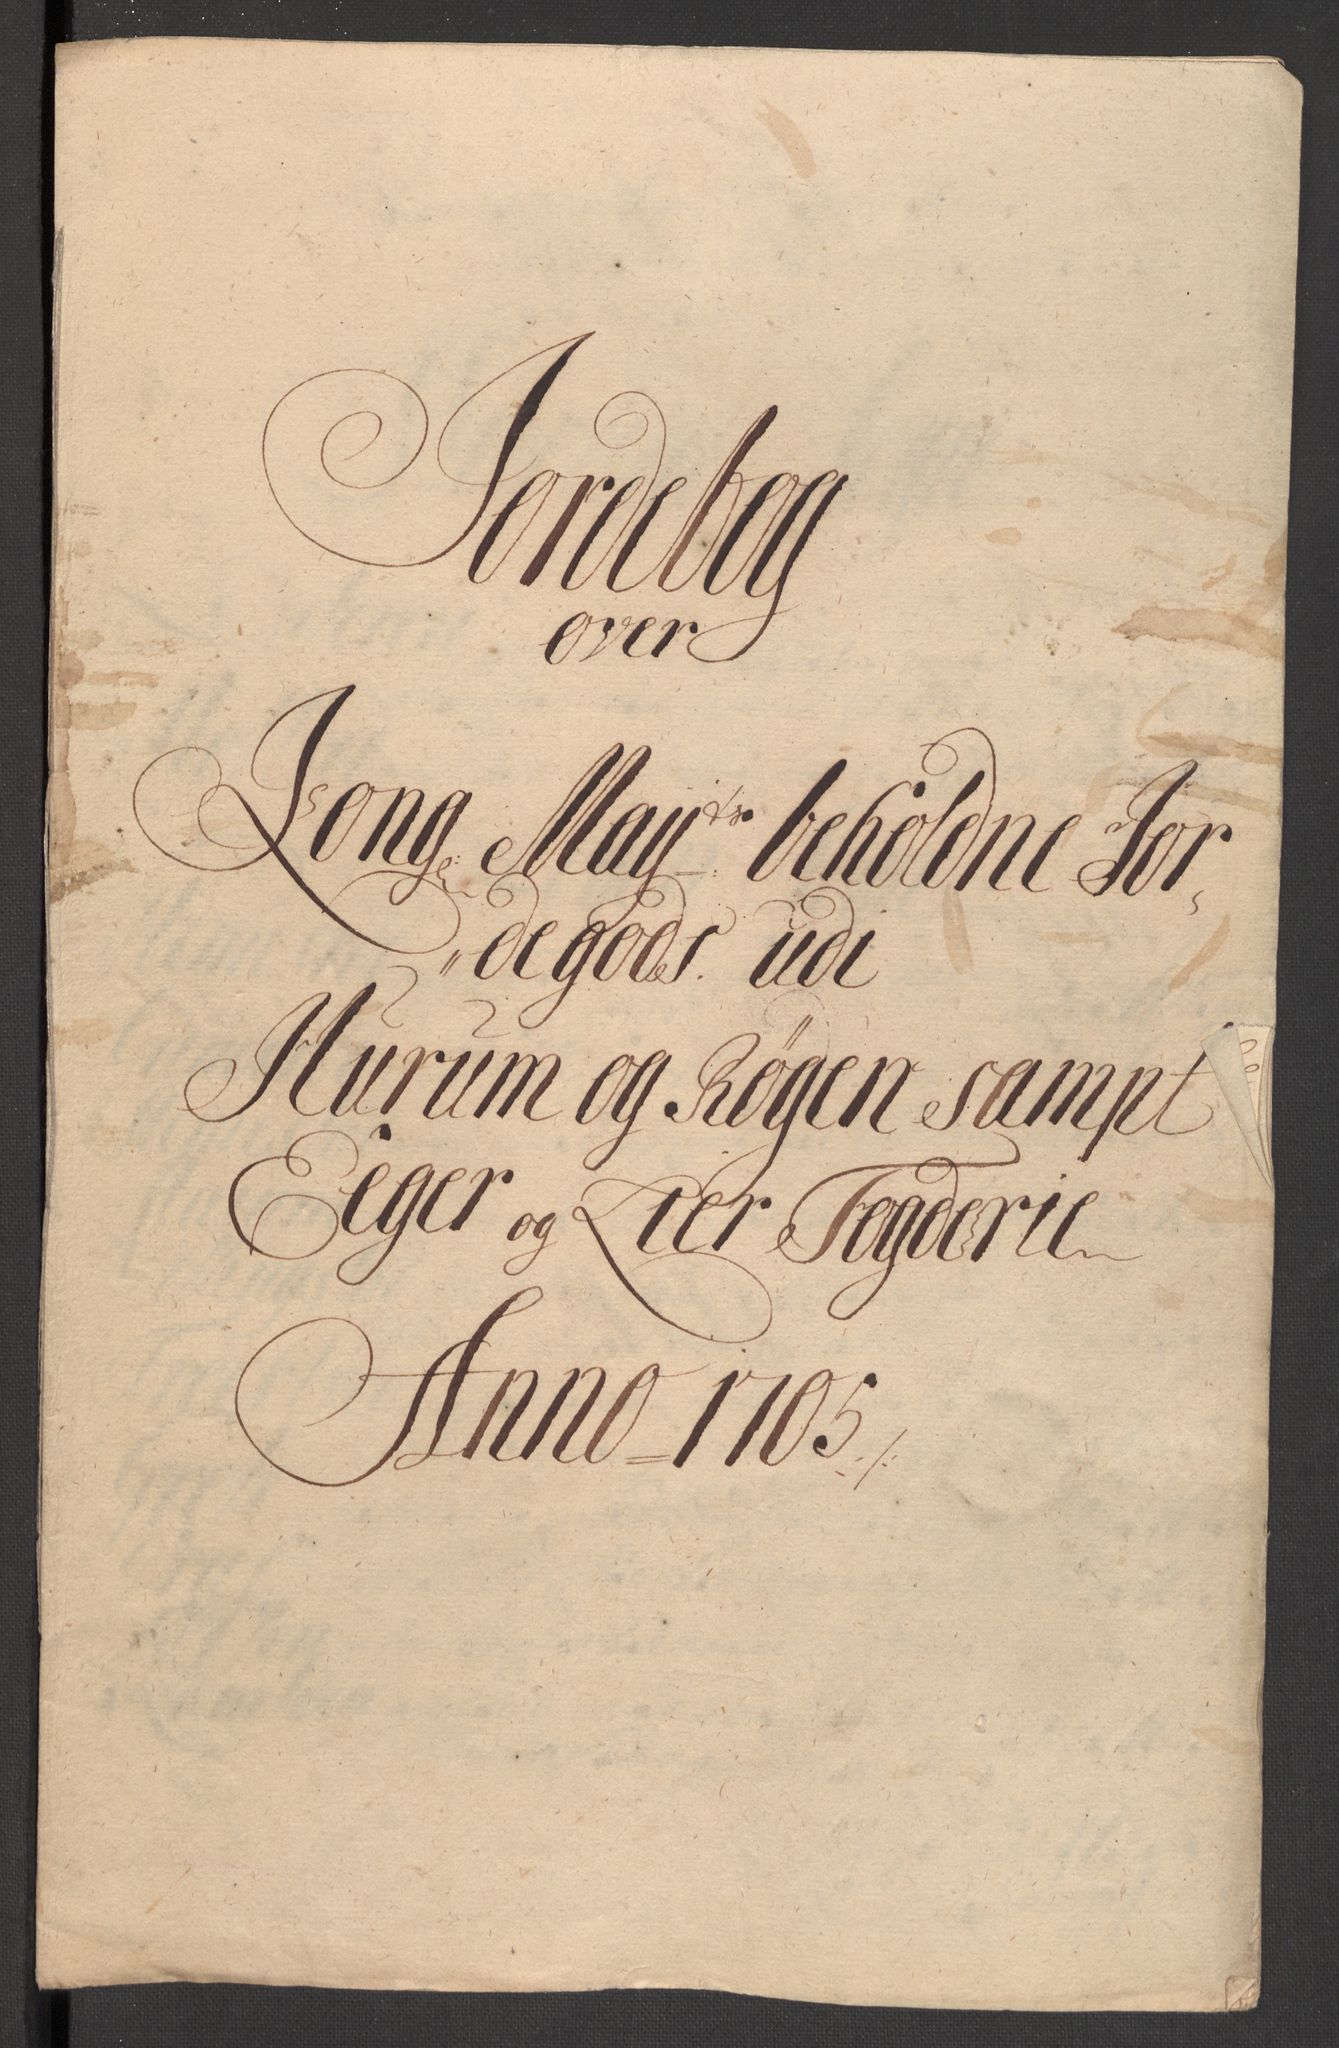 Jordebog
over
Kong: May.ts beholdne Jor,
"degods. udi
Hurum og Røgen sampt
Eiger og Lier Fogderie
Anno = 1705 ./.